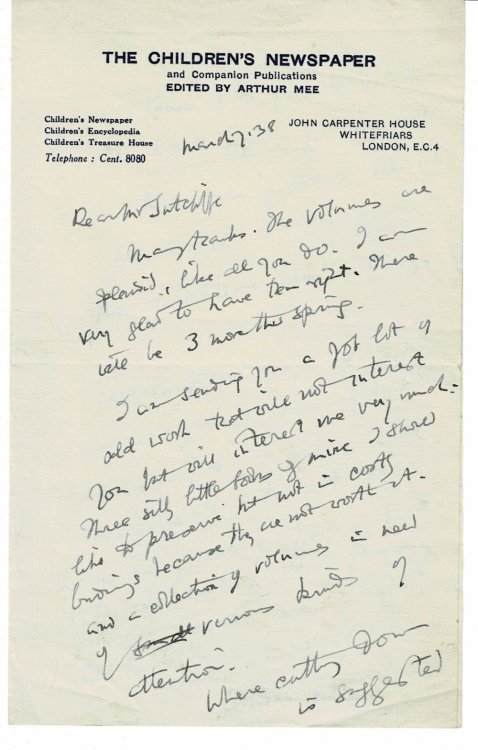 THE CHILDREN'S NEWSPAPER
and Companion Publications
EDITED BY ARTHUR MEE
Children's Newspaper
Children's Encyclopedia
Children's Treasure House
Telephone : Cent. 8080
JOHN CARPENTER HOUSE
WHITEFRIARS
LONDON, E.C.4
March 7. 38
Dear Mr Sutcliffe
Many thanks. The volumes are
splendid, like all you do. I am
very glad to have them right. There
will be 3 more this spring.
I am sending you a job lot of
odd work that will not interest
you but will interest me very much:
Three silly little books of mine I should
like to preserve but not in costly
bindings because they are not worth it.
and a collection of volumes in need
of various kinds of
attention.
Where cutting down
is suggested